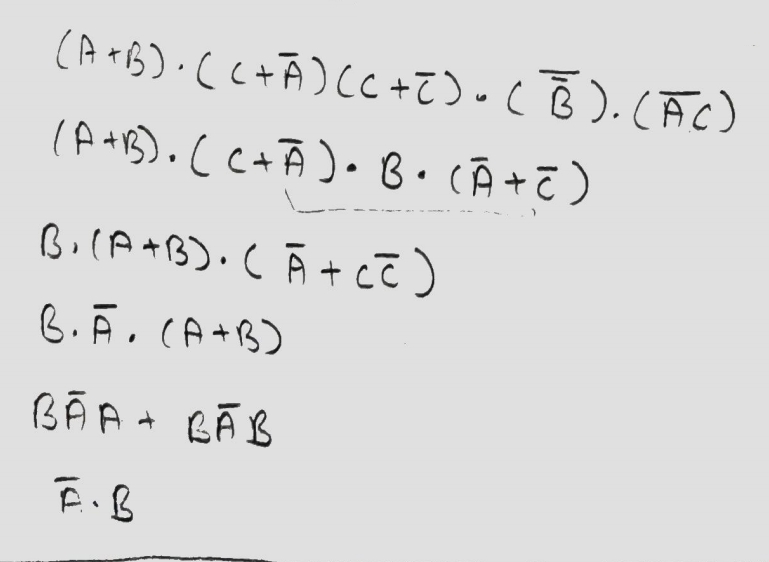 (A+B).(C+A̅)(C+C̅).(B̅̅).(A̅C̅)
(A+B).(C+A̅).B.(A̅+C̅)
B.(A+B).(A̅+CC̅)
B.A̅.(A+B)
BA̅A+BA̅B
A̅.B